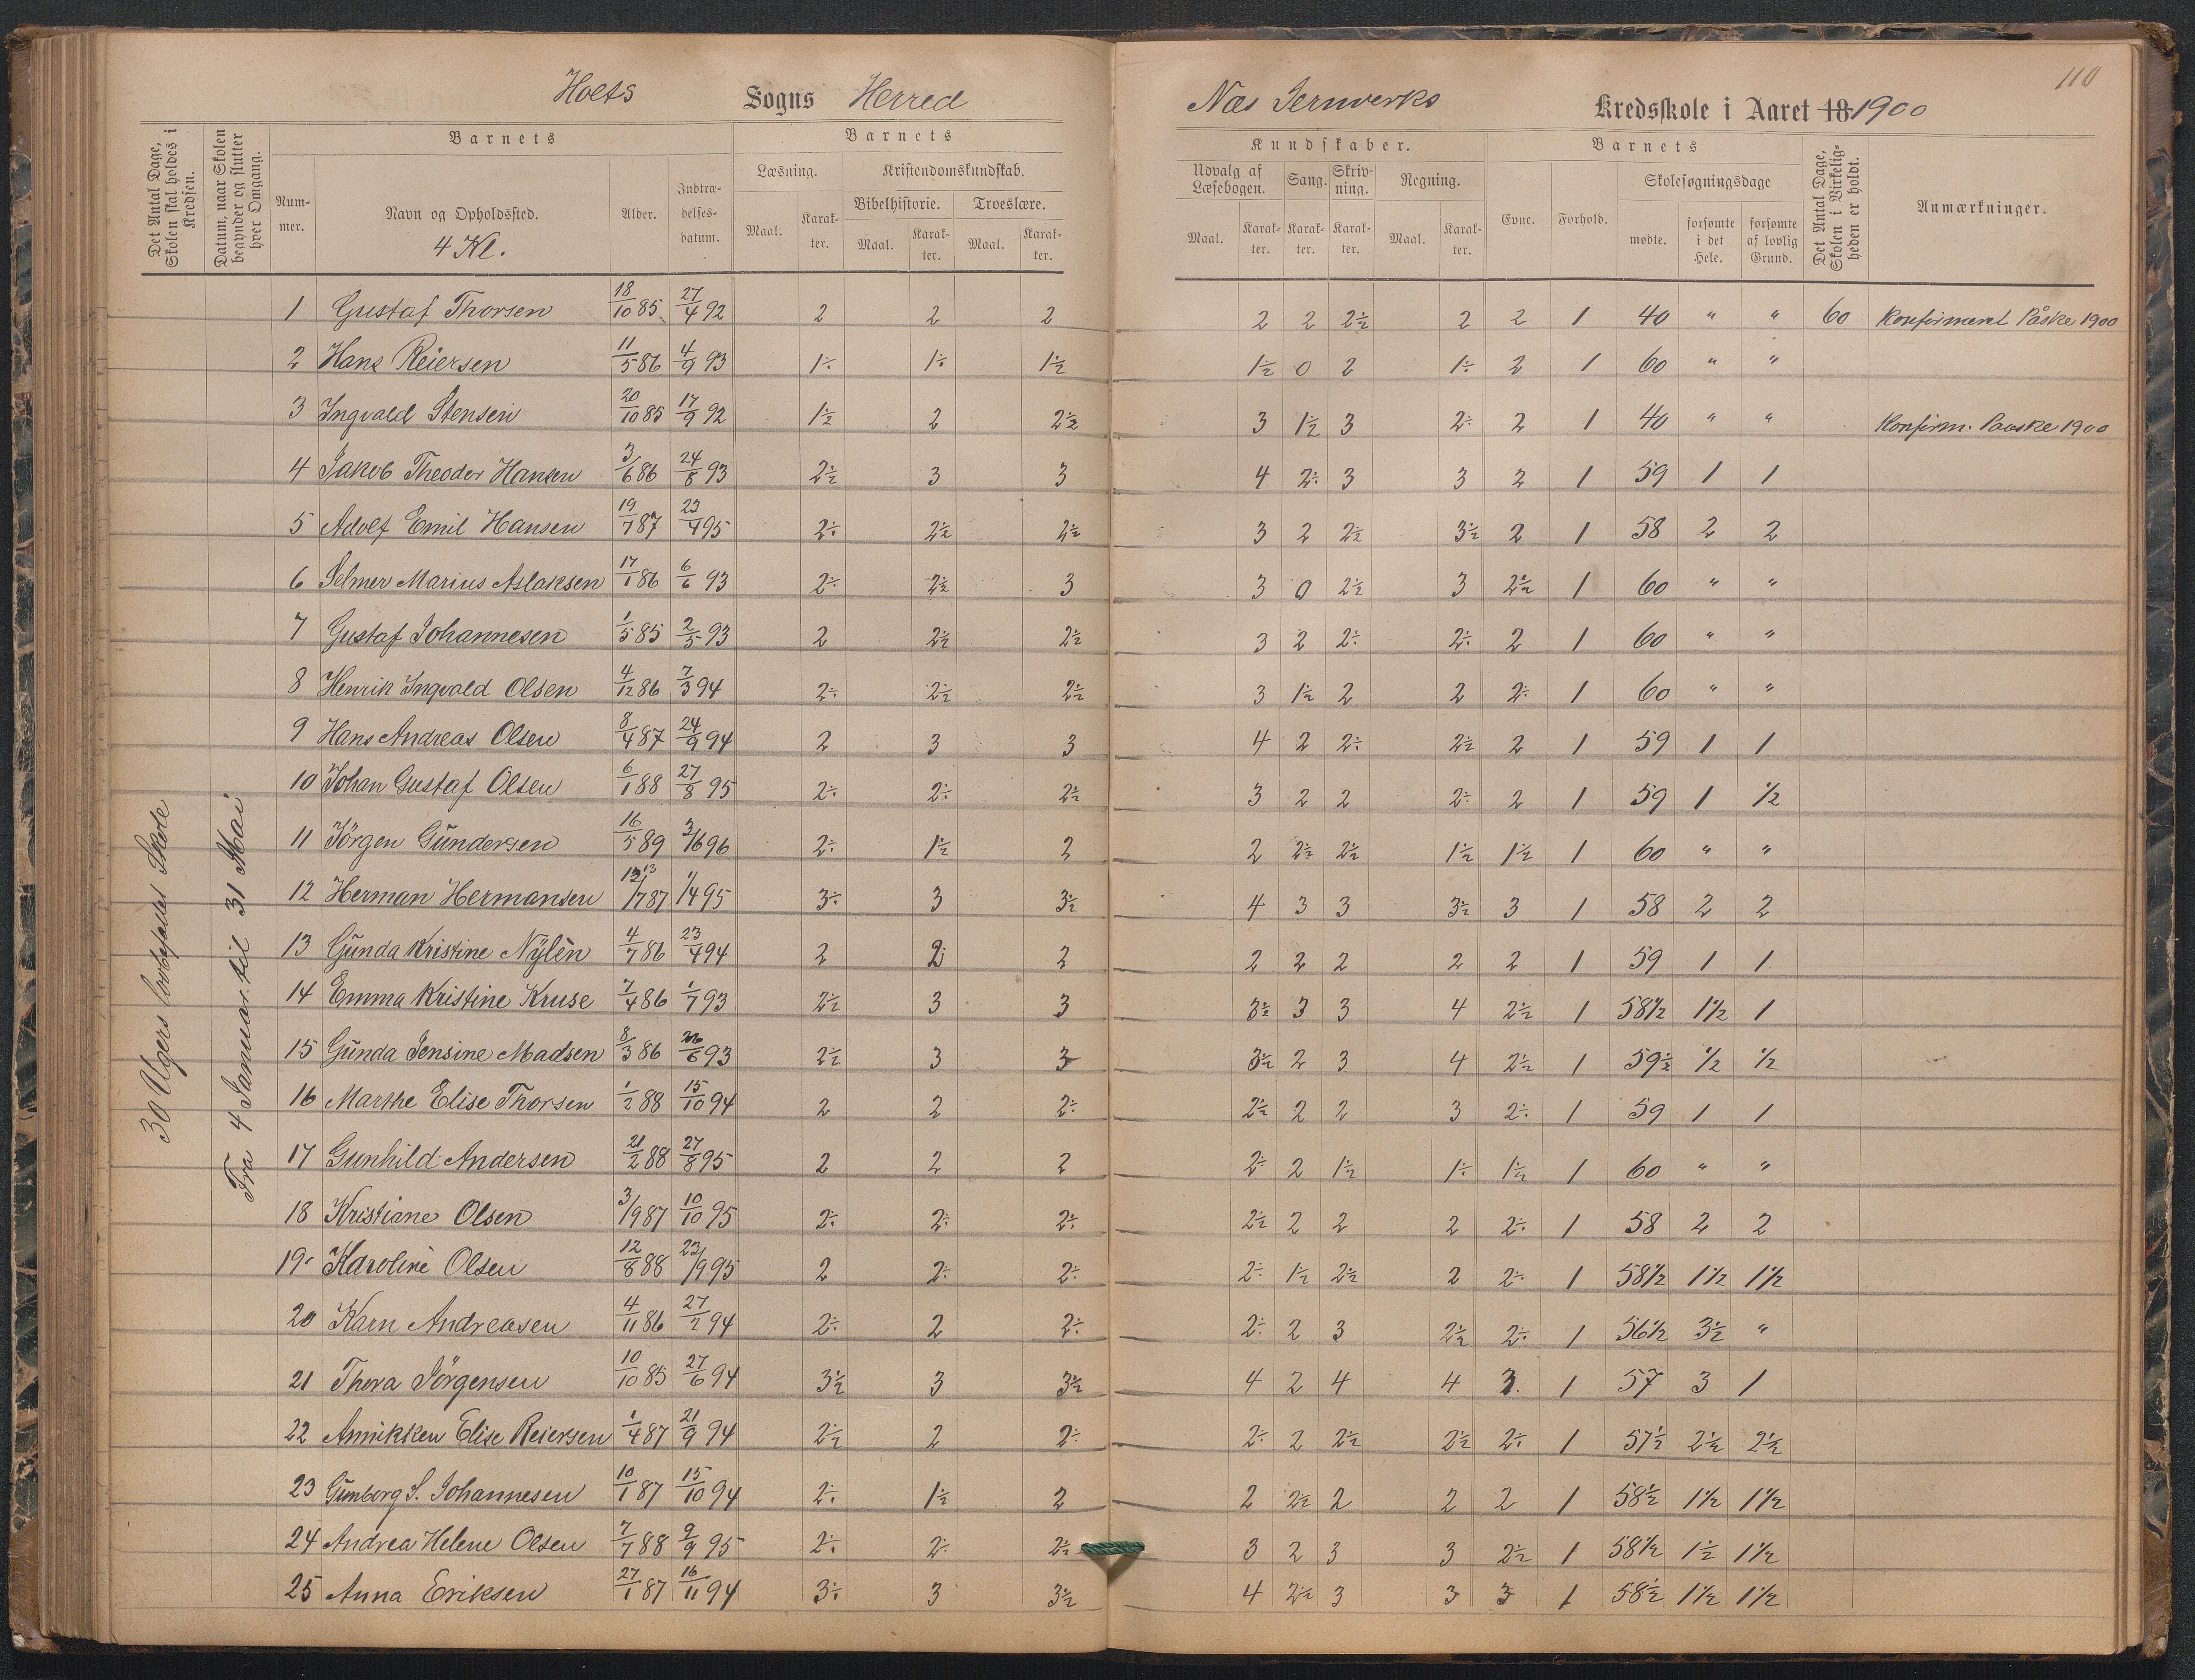 110
Hoets Sogns Herred Næs Jernverks Kredsskole i Aaret 18 1900
Det Antal Dage, Skolen skal holdes i Kredsen.
Datum, naar Skolen begynder og slutter hver Omgang.
Barnets
Nummer.
Navn og Opholdssted.
4 Kl.
Alder.
Indtrædelsesdatum.
Barnets
Læsning.
Maal. Karakter.
Kristendomskundskab.
Bibelhistorie.
Maal. Karakter.
Troeslære.
Maal. Karakter.
Kundskaber.
Udvalg af Læsebogen.
Maal. Karakter.
Sang.
Karakter.
Skrivning.
Karakter.
Regning.
Maal. Karakter.
Barnets
Evne.
Forhold.
Skolesøgningsdage
mødte.
forsømte i det Hele.
forsømte af lovlig Grund.
Det Antal Dage, Skolen i Virkeligheden er holdt.
Anmærkninger.
30 Ugers lovbefalet Skole
Fra 4 Januar til 31 Mai
1 Gustaf Thorsen 18/10 85 27/4 92 2 2 2 2 2 2½ 2 2 1 40 " " 60 Konfirmeret Påske 1900
2 Hans Reiersen 11/5 86 4/9 93 1÷ 1÷ 1½ 1½ 0 2 1÷ 2 1 60 " "
3 Ingvald Stensen 20/10 85 17/9 92 1½ 2 2½ 3 1½ 3 2÷ 2 1 40 " " Konfirm. Paaske 1900
4 Jakob Theodor Hansen 3/6 86 24/8 93 2½ 3 3 4 2÷ 3 3 2 1 59 1 1
5 Adolf Emil Hansen 19/7 87 23/4 95 2÷ 2½ 2½ 3 2 2½ 3½ 2 1 58 2 2
6 Selmer Marius Aslaksen 17/1 86 6/6 93 2÷ 2½ 3 3 0 2½ 3 2½ 1 60 " "
7 Gustaf Johannesen 1/5 85 2/5 93 2 2½ 2½ 3 2 2÷ 2÷ 2 1 60 " "
8 Henrik Ingvald Olsen 4/12 86 7/3 94 2÷ 2½ 2½ 3 1½ 2 2 2÷ 1 60 " "
9 Hans Andreas Olsen 8/4 87 24/9 94 2 3 3 4 2 2÷ 2½ 2 1 59 1 1
10 Johan Gustaf Olsen 6/1 88 27/8 95 2÷ 2÷ 2½ 3 2 2 2÷ 2 1 59 1 ½
11 Jörgen Gundersen 16/5 89 3/1696 2÷ 1½ 2 2 2½ 2½ 1½ 1½ 1 60 " "
12 Herman Hermansen 13/7 87 1/4 95 3÷ 3 3½ 4 3 3 3½ 3 1 58 2 2
13 Gunda Kristine Nylén 4/7 86 23/4 94 2 2 2 2 2 2 2 2 1 59 1 1
14 Emma Kristine Kruse 7/4 86 1/7 93 2½ 3 3 3½ 3 3 4 2½ 1 58½ 1½ 1
15 Gunda Jensine Madsen 8/3 86 26/6 93 2½ 3 3 3½ 2 3 4 2½ 1 59½ ½ ½
16 Marthe Elise Thorsen 1/2 88 15/10 94 2 2 2÷ 2½ 2 2 3 2÷ 1 59 1 1
17 Gunhild Andersen 21/2 88 27/8 95 2 2 2 2÷ 2 1½ 1÷ 1½ 1 60 " "
18 Kristiane Olsen 3/9 87 10/10 95 2÷ 2÷ 2÷ 2½ 2 2 2 2÷ 1 58 2 2
19 Karoline Olsen 12/8 88 23/9 95 2 2÷ 2÷ 2÷ 1½ 2½ 2 2÷ 1 58½ 1½ 1½
20 Karn Andreasen 4/11 86 27/2 94 2÷ 2 2÷ 2÷ 2 3 2½ 2÷ 1 56½ 3½ "
21 Thora Jörgensen 10/10 85 27/6 94 3½ 3 3½ 4 2 4 4 3 1 57 3 1
22 Annikken Elise Reiersen 1/4 87 21/9 94 2½ 2 2÷ 2÷ 2 2½ 2½ 2÷ 1 57½ 2½ 2½
23 Gunborg S. Johannesen 10/1 87 15/10 94 2÷ 1½ 2 2 2½ 2 2 2 1 58½ 1½ 1½
24 Andrea Helene Olsen 7/7 88 9/9 95 2÷ 2÷ 2½ 3 2 3 3 2½ 1 58½ 1½ 1½
25 Anna Eriksen 27/1 87 16/11 94 3÷ 3 3½ 4 2½ 3 3 3 1 58½ 1½ 1½